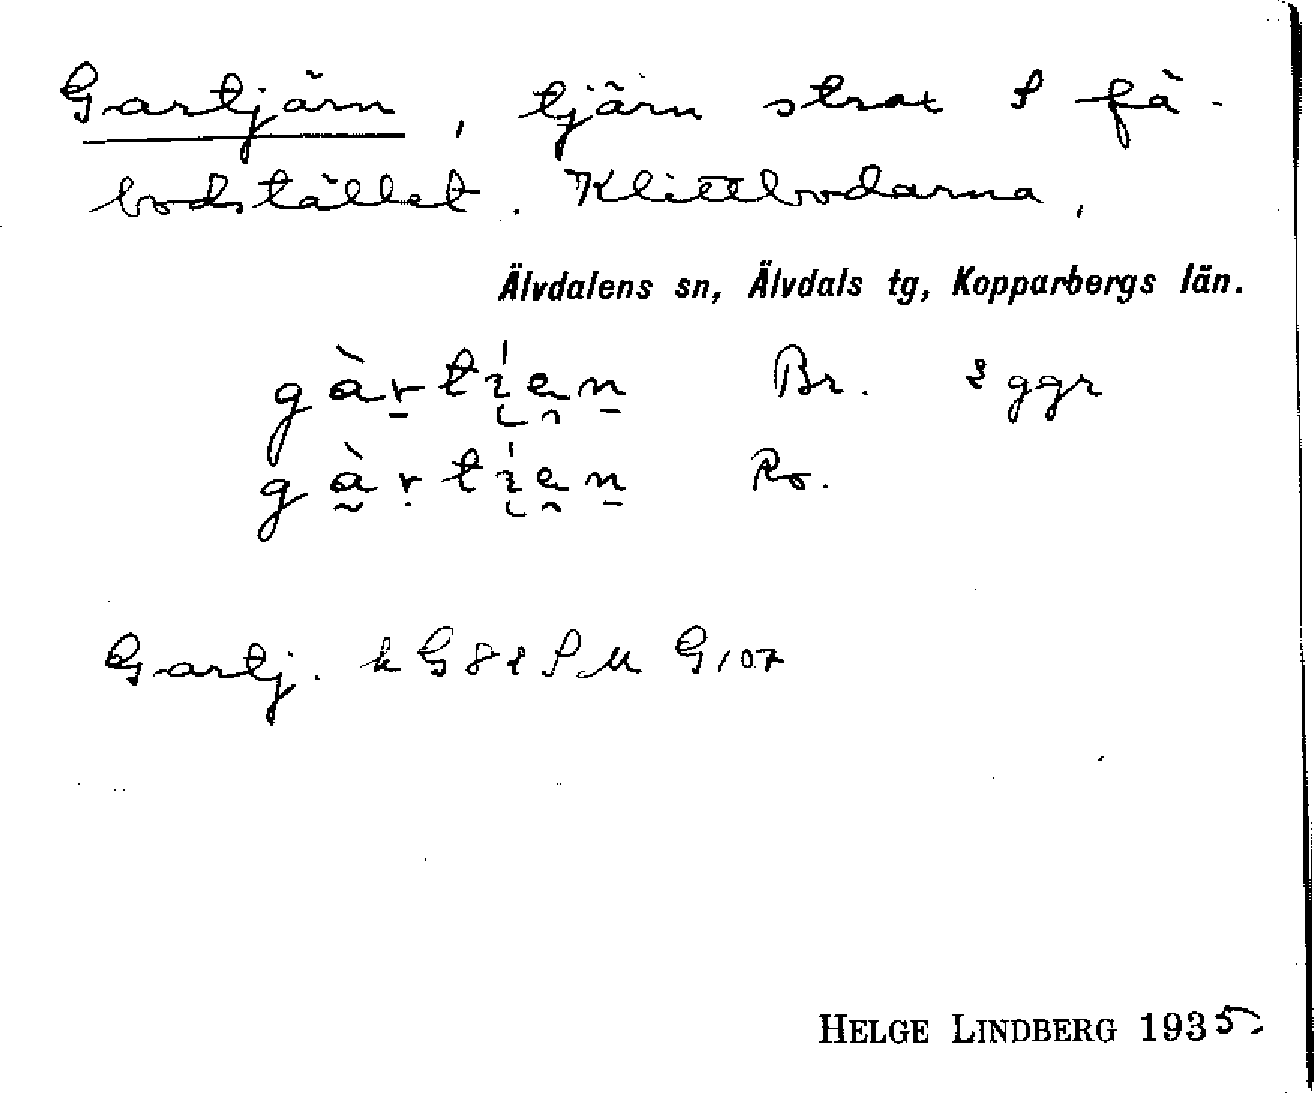 Gartjärn, tjärn strax S fä-
bodstället. Klittbodarna,
Älvdalens sn, Älvdals tg, Kopparbergs län.
gàr̠tı̨́e̯n̠ Br. 2 ggr
gà̰ṛtı̨́e̯n̠ Ro.
Gartj. k G 82 S M G 107
HELGE LINDBERG 1935